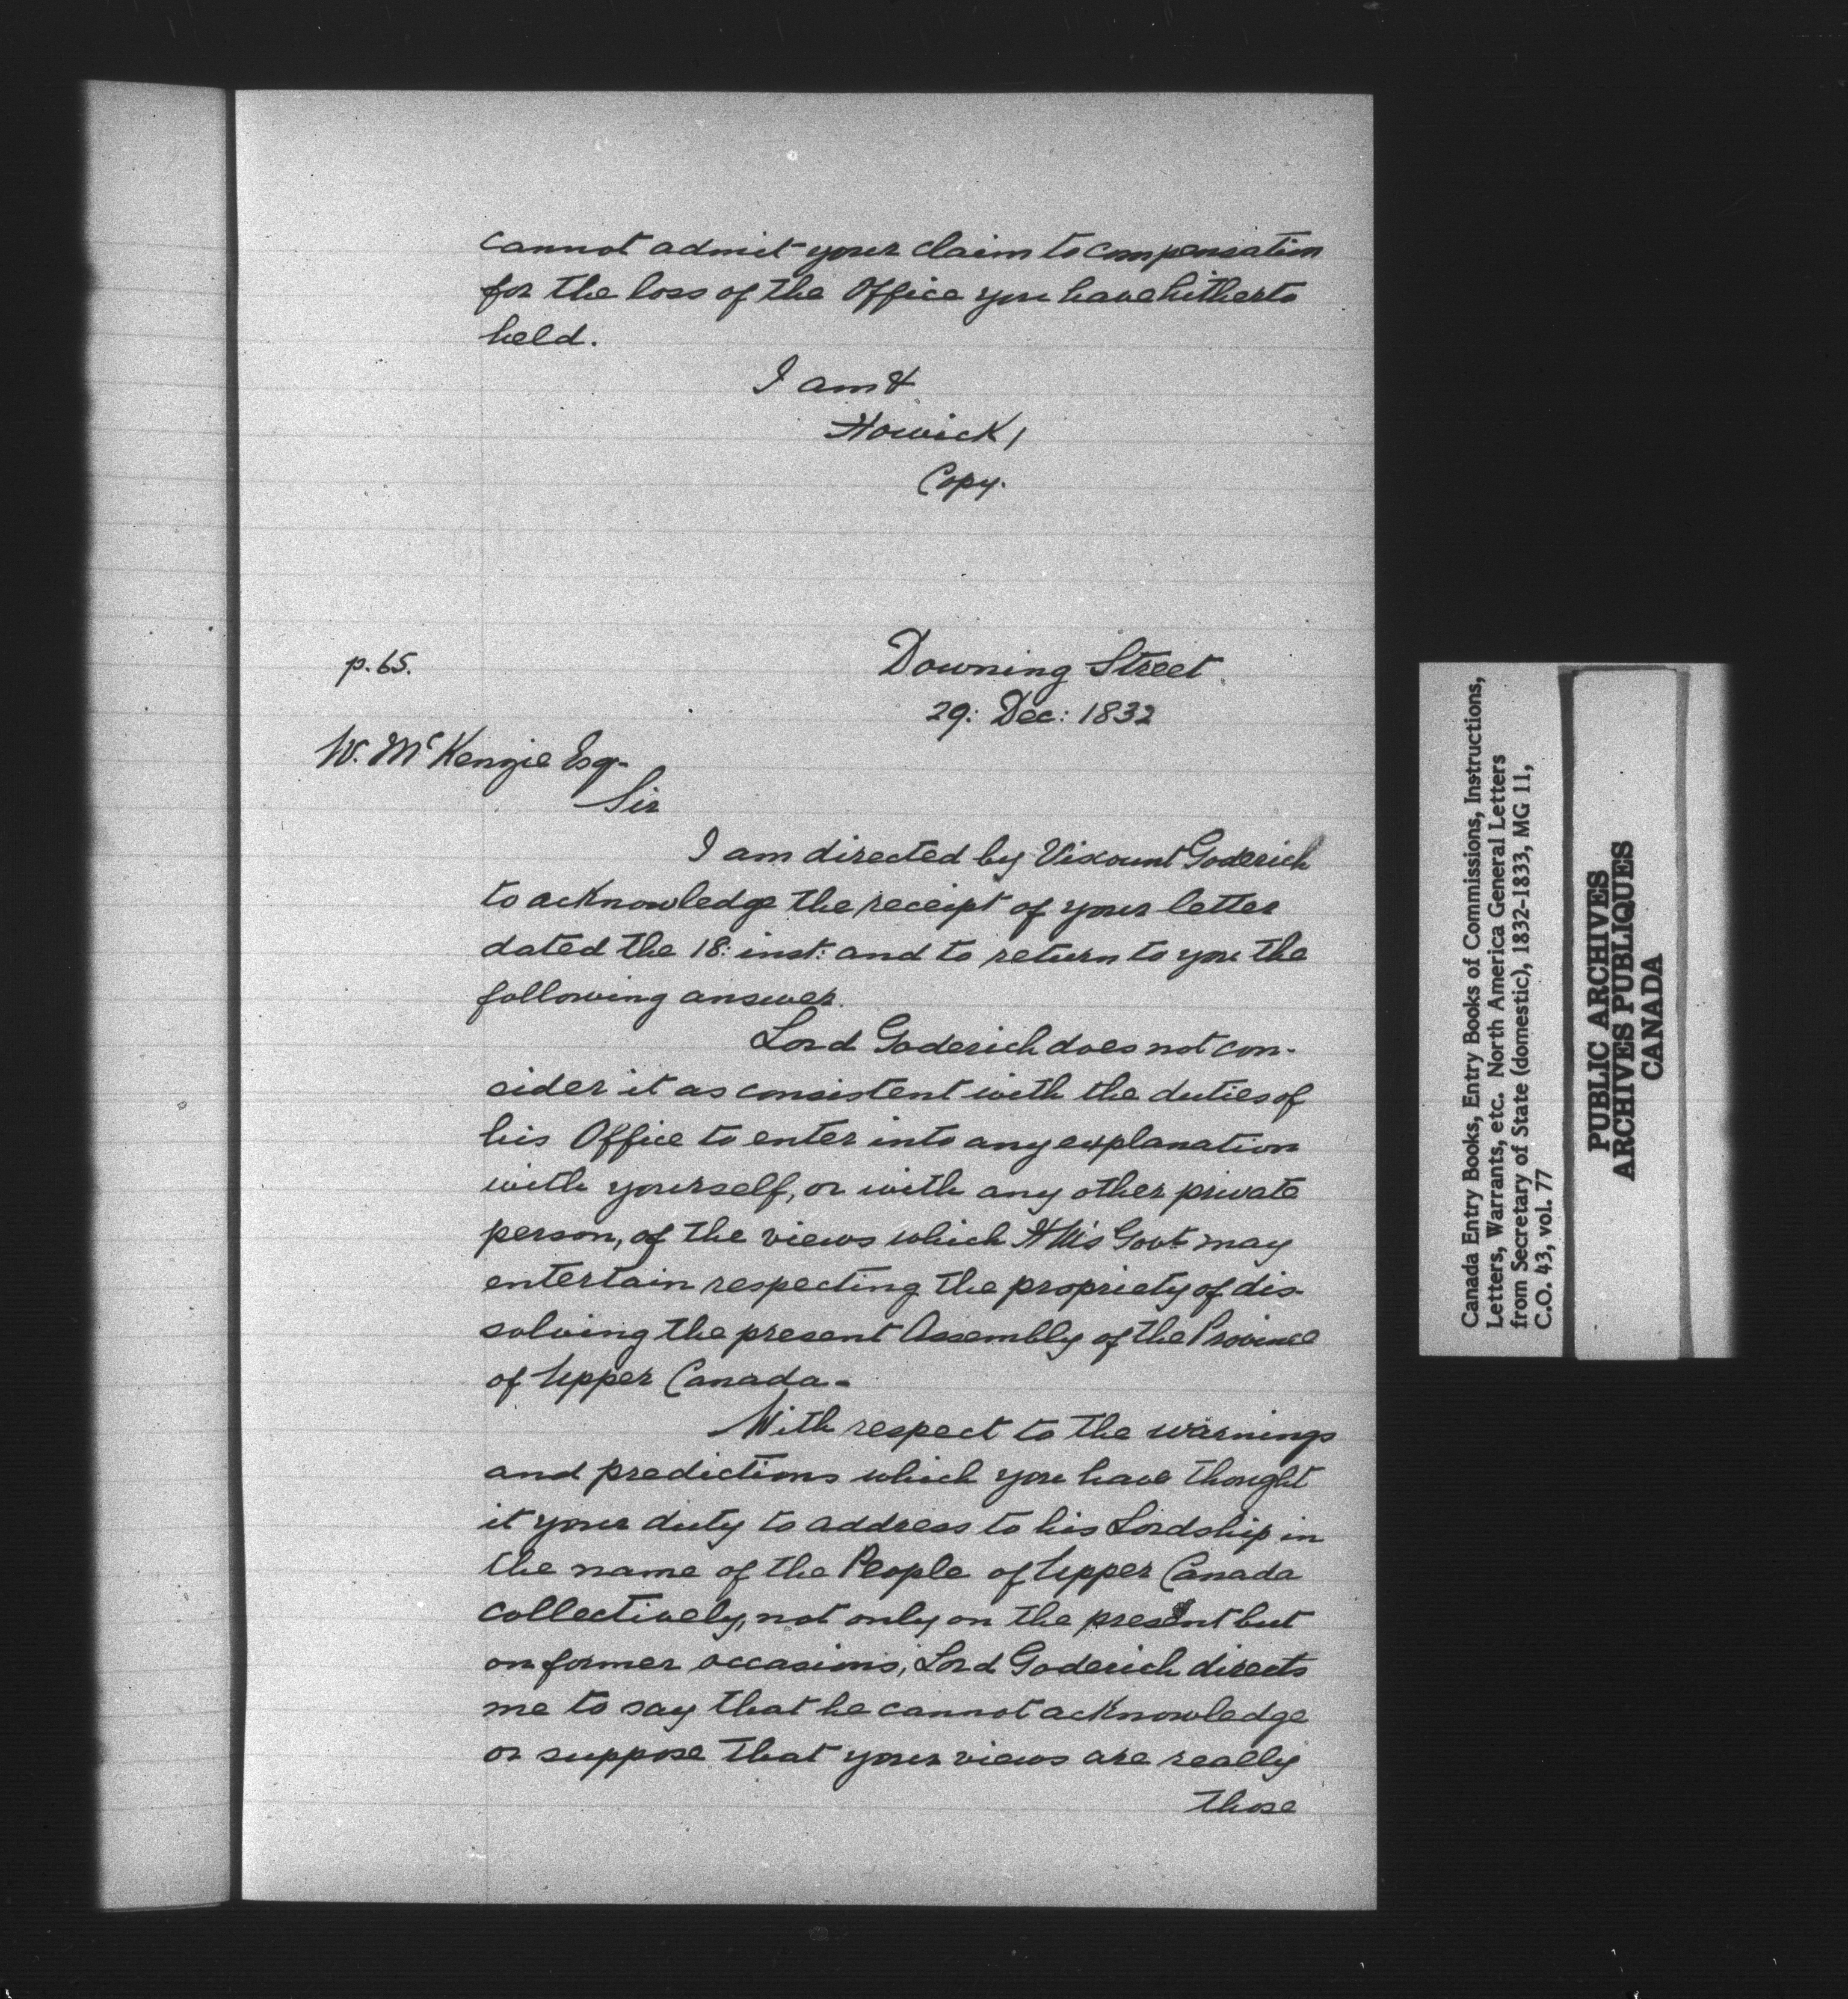 cannot admit your claim to compensation
for the loss of the Office you have hitherto
held.
I am &
Howick /
Copy.
p. 65.
Downing Street.
29: Dec: 1832
W. McKenzie Esq-
Sir
I am directed by Viscount Goderich
to acknowledge the receipt of your letter
dated the 18: inst: and to return to you the
following answer.
Lord Goderich does not con-
sider it as consistent with the duties of
his Office to enter into any explanation
with yourself, or with any other private
person, of the views which HM's Govt may
entertain respecting the propriety of dis-
solving the present Assembly of the Province
of Upper Canada -
With respect to the warnings
and predictions which you have thought
it your duty to address to his Lordship in
the name of the People of Upper Canada
collectively, not only on the present but
on former occasions, Lord Goderich directs
me to say that he cannot acknowledge
or suppose that your views are really
those
Canada Entry Books, Entry Books of Commissions, Instructions,
Letters, Warrants, etc. North America General Letters
from Secretary of State (domestic), 1832-1833, MG 11,
C.O. 43, vol. 77
PUBLIC ARCHIVES
ARCHIVES PUBLIQUES
CANADA